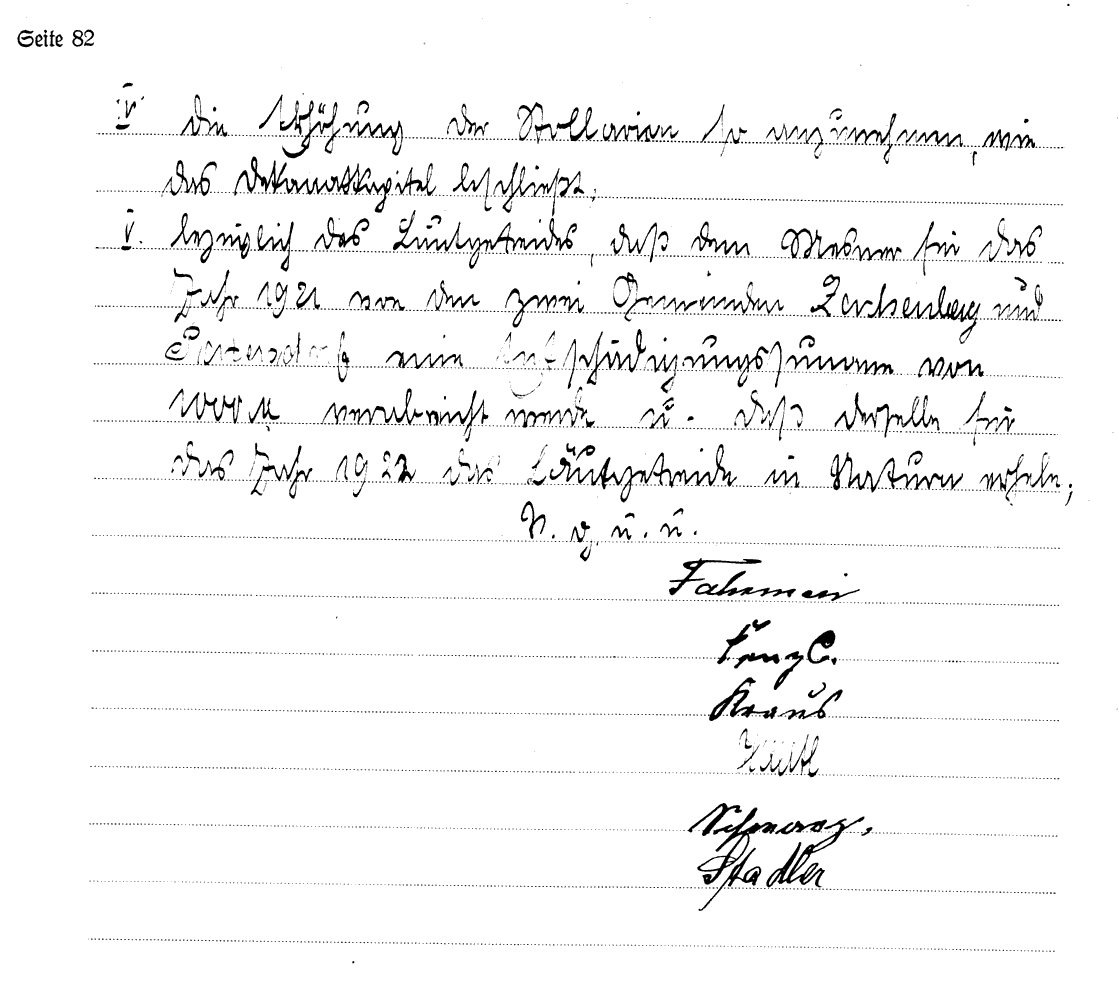 Seite 82
IV. die Erhöhung der Stollarien so anzunehmen, wie
das Dekanatkapitel beschließt;
V. bezüglich des Läutgetreides, daß dem Mesner für das
Jahr 1921 von den zwei Gemeinden Zachenberg und
Patersdorf eine Entschädigungssumme von
1000 M verabreicht werde u. daß derselbe für
das Jahr 1922 das Läutgetreide in Natura erhalte;
V. g. u. u.
Fahrmeier
Kraus
Schwarz.
Stadler